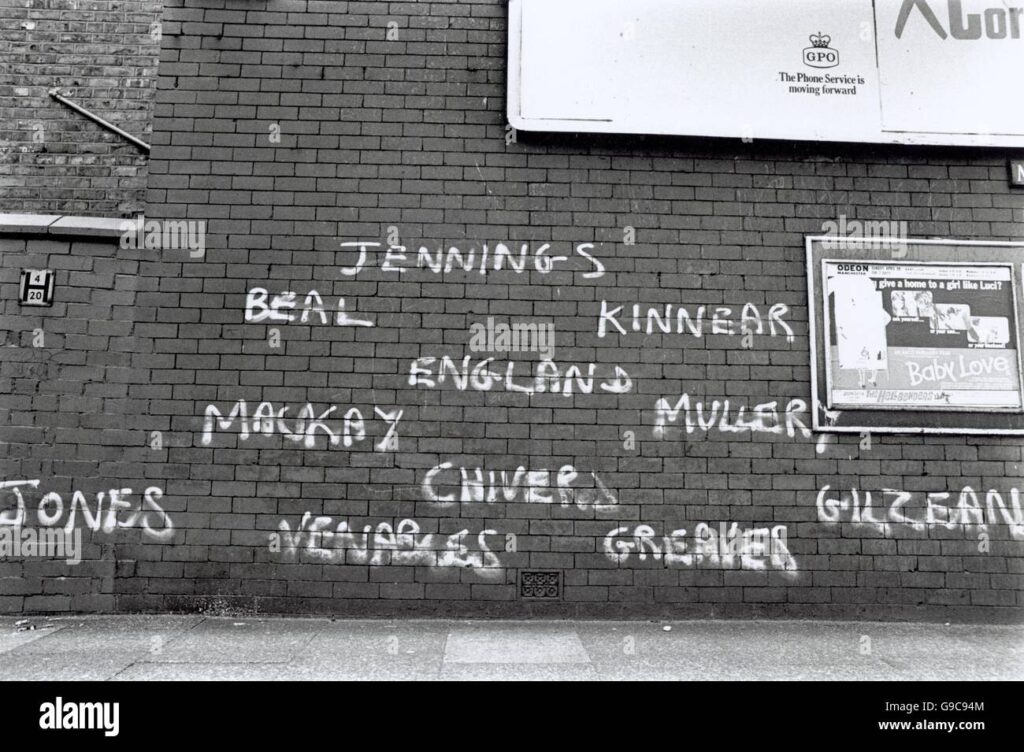 GPO
The Phone Service is
moving forward
4
H
20
JENNINGS
BEAL KINNEAR
ENGLAND
MACKAY MULLERY
CHIVERS
JONES VENABLES GREAVES GILZEAN
ODEON
MANCHESTER
give a home to a girl like Luci?
Baby Love
alamy
Image ID: G9C94M
www.alamy.com